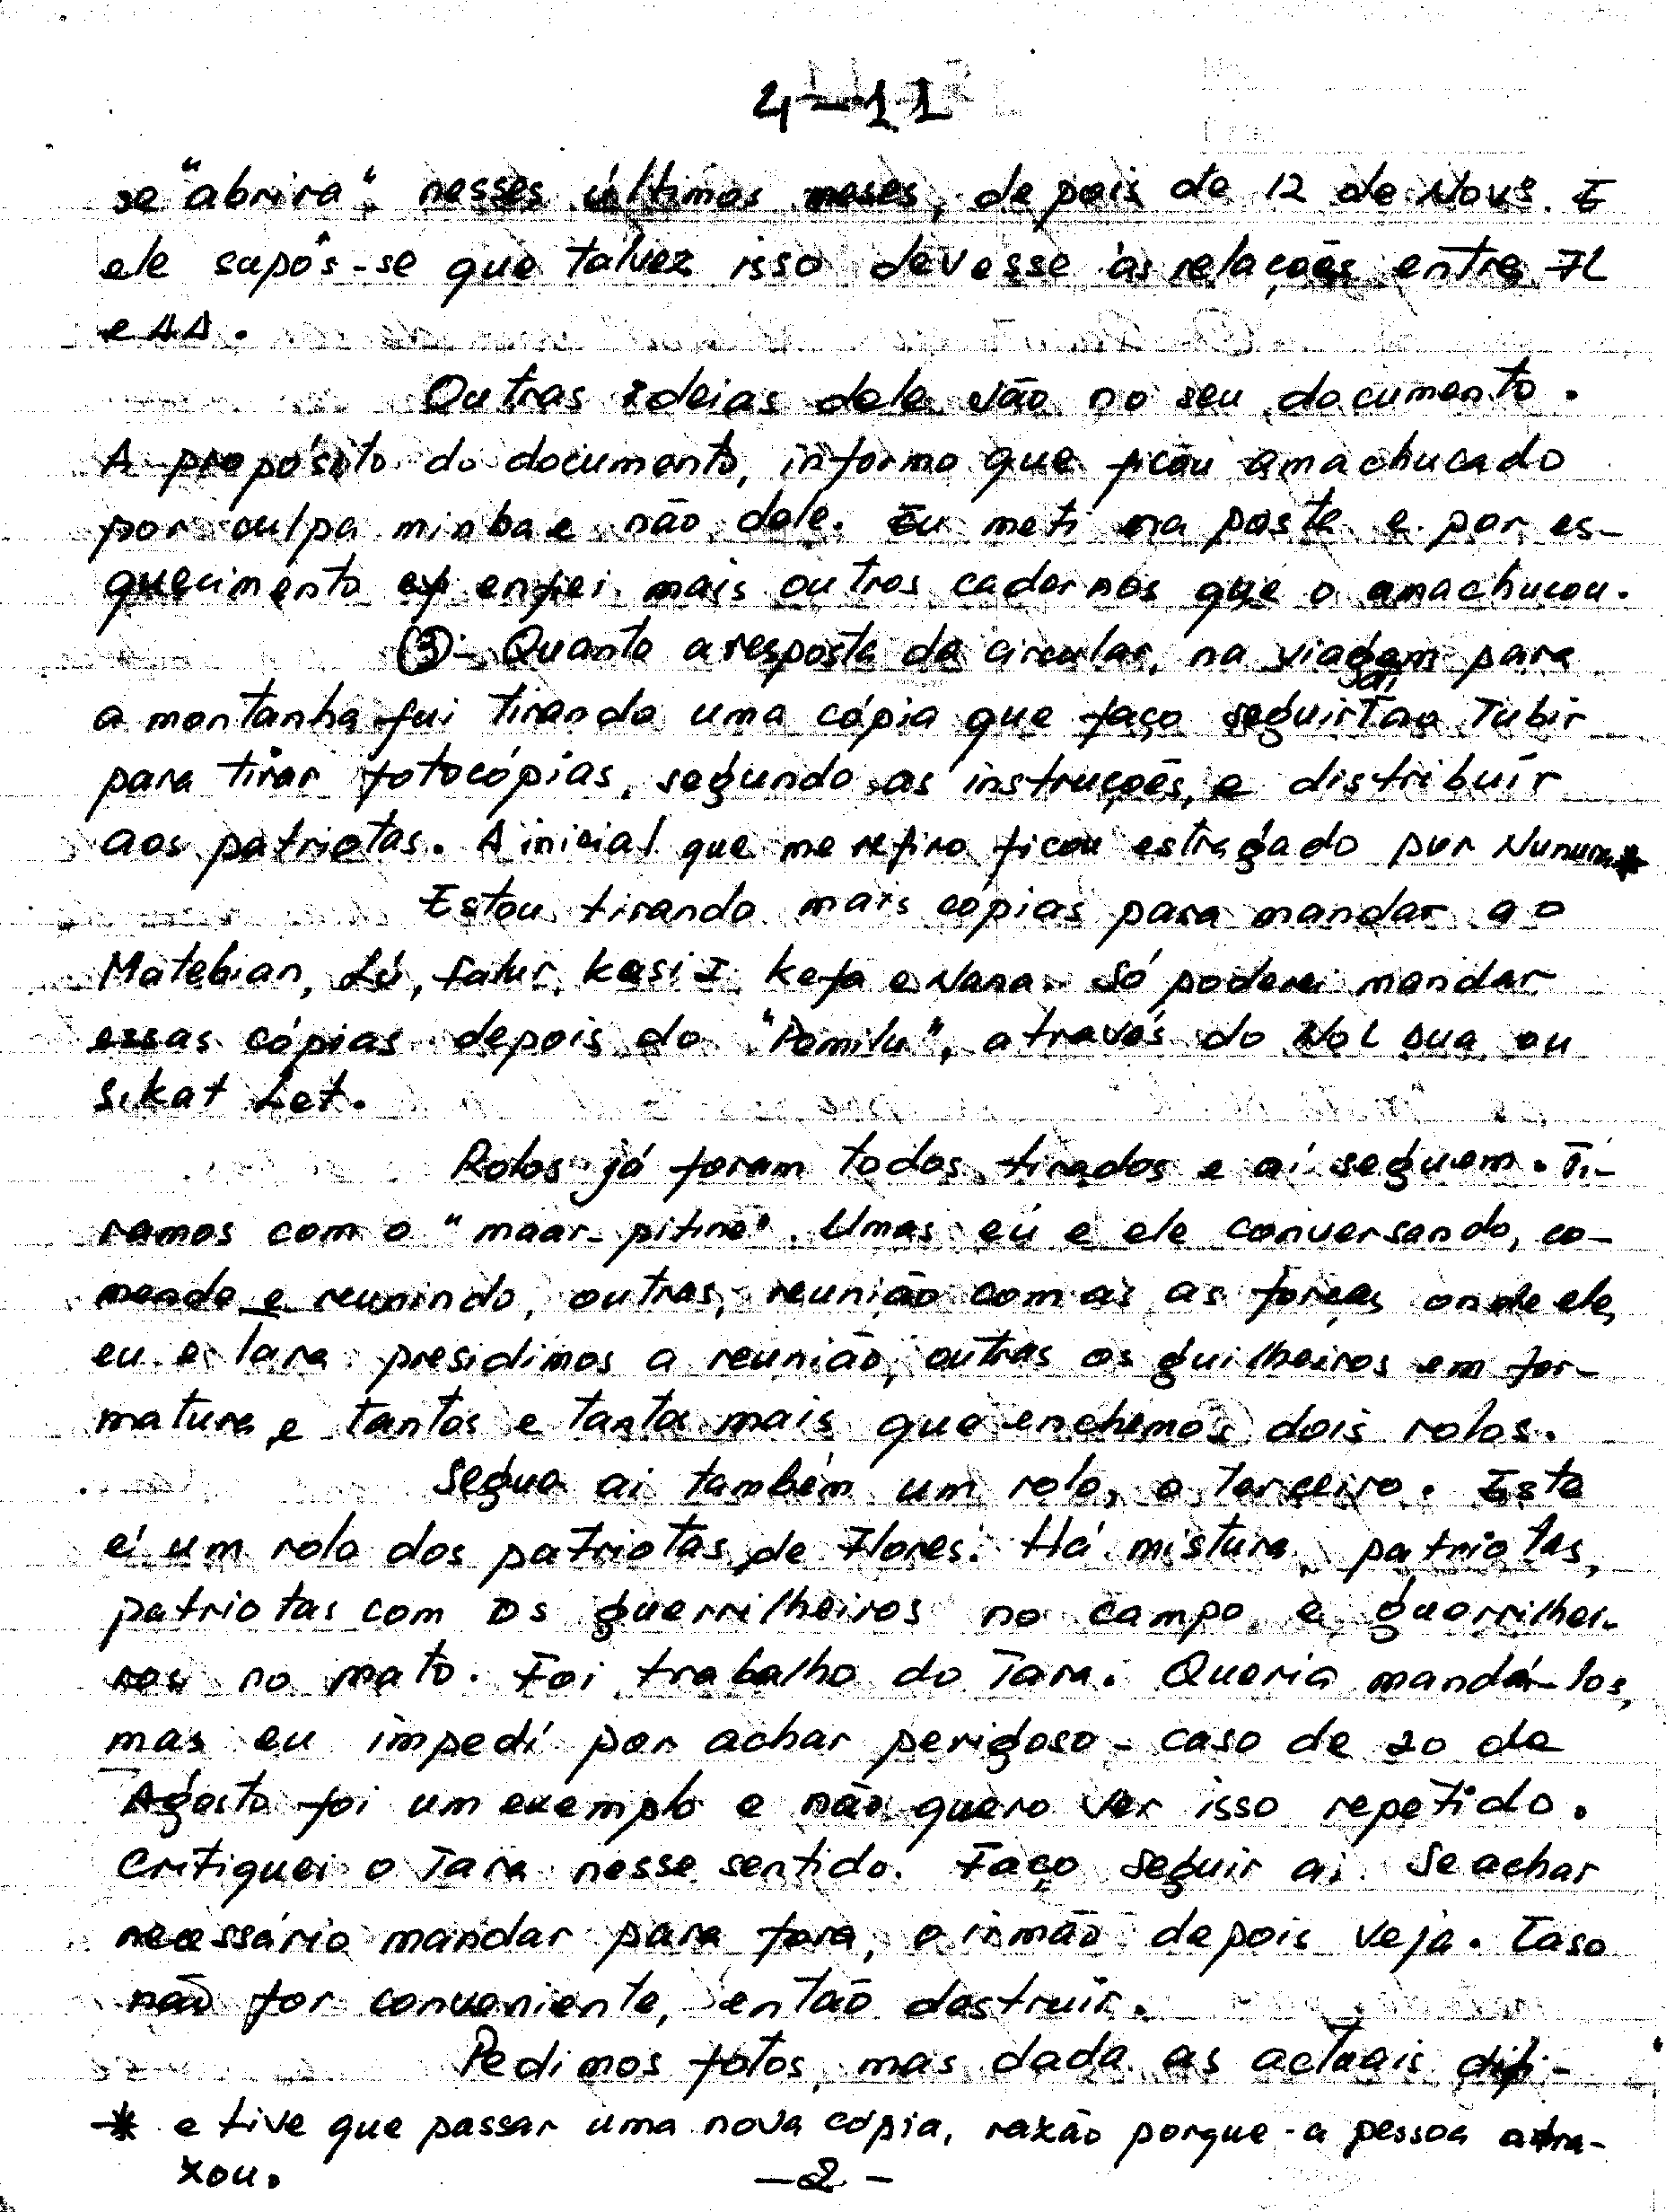 4-11
se "abrira" nesses últimos meses, depois de 12 de Novº. E
ele supôs-se que talvez isso devesse às relações entre FL
e AA.
Outras ideias dele vão no seu documento.
A propósito do documento, informo que ficou amachucado
por culpa minha e não dele. Eu meti na pasta e por es-
quecimento enfiei mais outros cadernos que o amachucou.
(3)- Quanto a resposta da circular, na viagem para
a montanha fui tirando uma cópia que faço seguir Tubir
para tirar fotocópias, segundo as instruções, e distribuír
aos patriotas. A inicial que me refiro ficou estragado por Nunura*
Estou tirando mais cópias para mandar ao
Matebian, Lú, falur, kasi I kefa e Nana. Só poderei mandar
essas cópias depois do "Pemilu", através do Nol Sua ou
Sikat Let.
Rolos já foram todos tirados e aí seguem. Ti-
ramos com o "maar-pitine". Umas eu e ele conversando, co-
mendo e reunindo, outras, reunião com as as forças onde ele,
eu e Tara presidimos a reunião, outras os guilheiros em for-
matura e tantos e tantas mais que enchemos dois rolos.
Segue aí também um rolo, o terçeiro. Este
é um rolo dos patriotas de Flores. Há mistura, patriotas,
patriotas com os guerrilheiros no campo e guerrilhei-
ros no mato. Foi trabalho do Tara. Queria mandá-los,
mas eu impedí por achar perigoso - caso de 20 de
Agosto foi um exemplo e não quero ver isso repetido.
Critiquei o Tara nesse sentido. Faço seguir aí. Se achar
necessário mandar para fora, o irmão depois veja. Caso
não for conveniente, então destruir.
Pedimos fotos, mas dada as actuais difi-
* e tive que passar uma nova cópia, razão porque a pessoa atra-
xou.
-2-